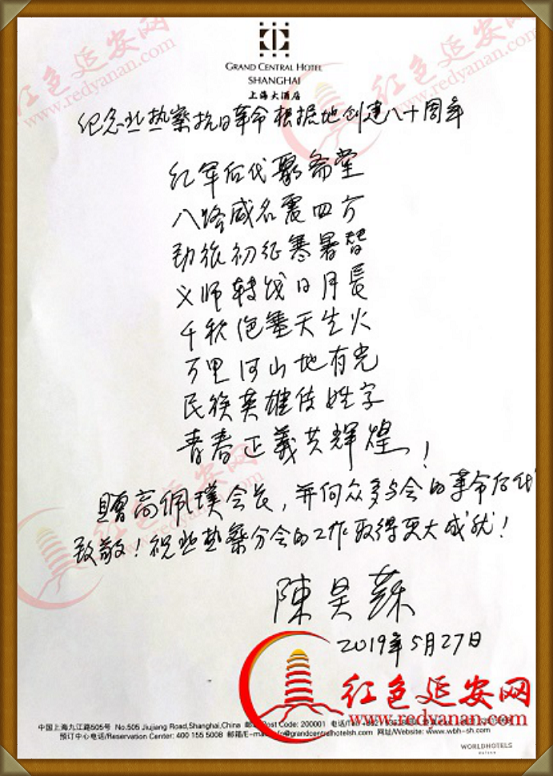 红色延安网
www.redyanan.com
GRAND CENTRAL HOTEL
SHANGHAI
上海大酒店
纪念热察抗日革命根据地创建八十周年
红军后代聚斋堂
八路威名震四方
劲旅初征寒暑
义师转战日月長
千秋堡垒天生火
万里河山地有光
民族英雄传姓字
青春正義共辉煌!
贈高佩璞会长,并向众多与会的革命后代
致敬!祝热察分会的工作取得更大成就!
陳昊蘇
2019年5月27日
红色延安网
www.redyanan.com
中国上海九江路505号 No.505 Jiujiang Road,Shanghai,China 邮 Post Code: 200001 电话/T
预订中心电话/Reservation Center: 400 155 5008 邮箱/E-ma fo@grandcentralhotelsh.com 网站/Website: www.wbh-sh.com
WORLDHOTELS